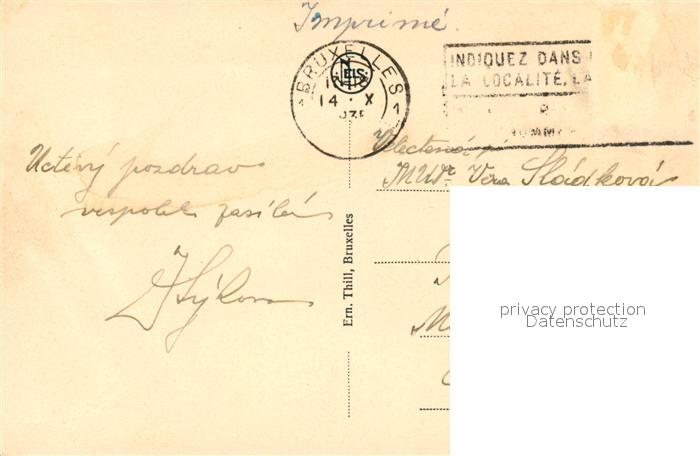 Imprimé
BRUXELLES
NELS
14 · X
1 1
INDIQUEZ DANS
LA LOCALITÉ, LA
Uctivý pozdrav
vespolek zasílá
Velectená
MUDr Věra Sládková
Ern. Thill, Bruxelles
privacy protection
Datenschutz